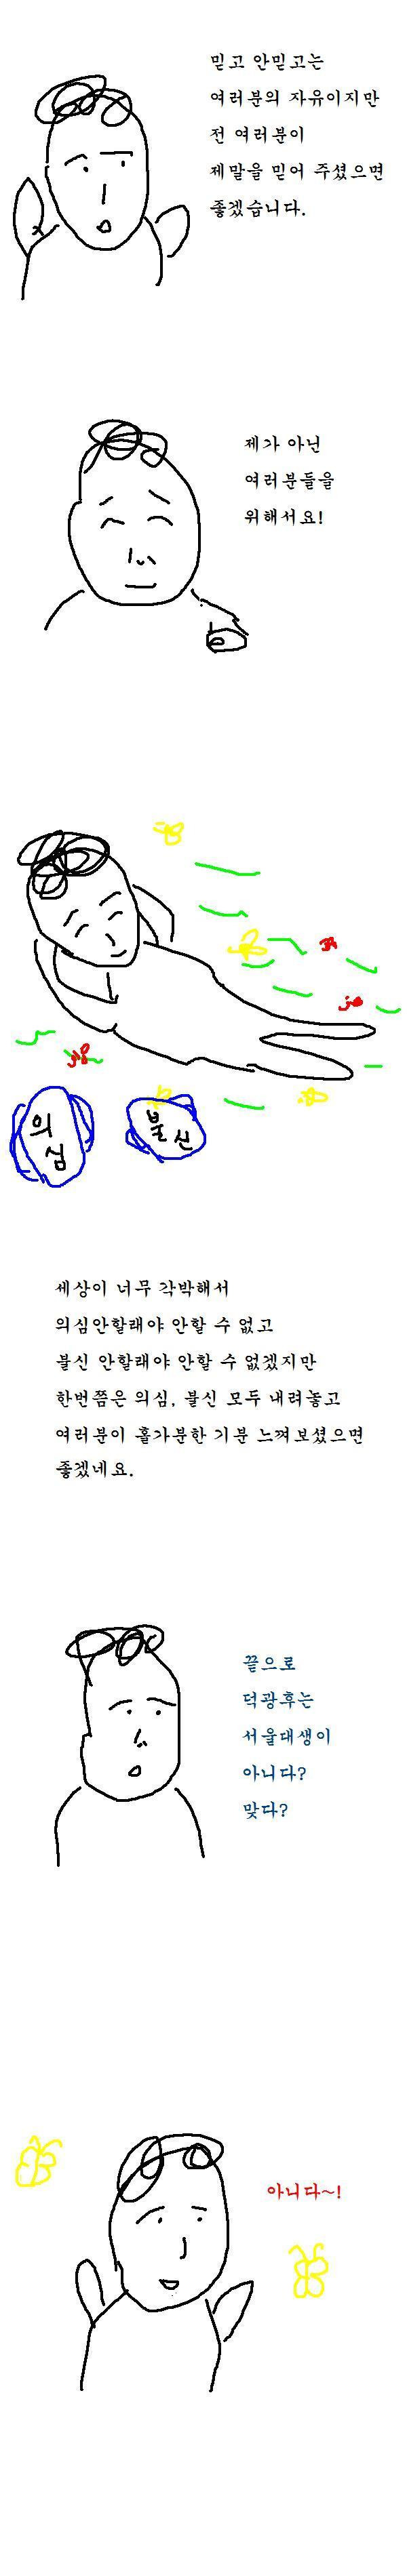 믿고 안믿고는
여러분의 자유이지만
전 여러분이
제말을 믿어 주셨으면
좋겠습니다.
제가 아닌
여러분들을
위해서요!
의심
불신
세상이 너무 각박해서
의심안할래야 안할 수 없고
불신 안할래야 안할 수 없겠지만
한번쯤은 의심, 불신 모두 내려놓고
여러분이 홀가분한 기분 느껴보셨으면
좋겠네요.
끝으로
덕광후는
서울대생이
아니다?
맞다?
아니다~!